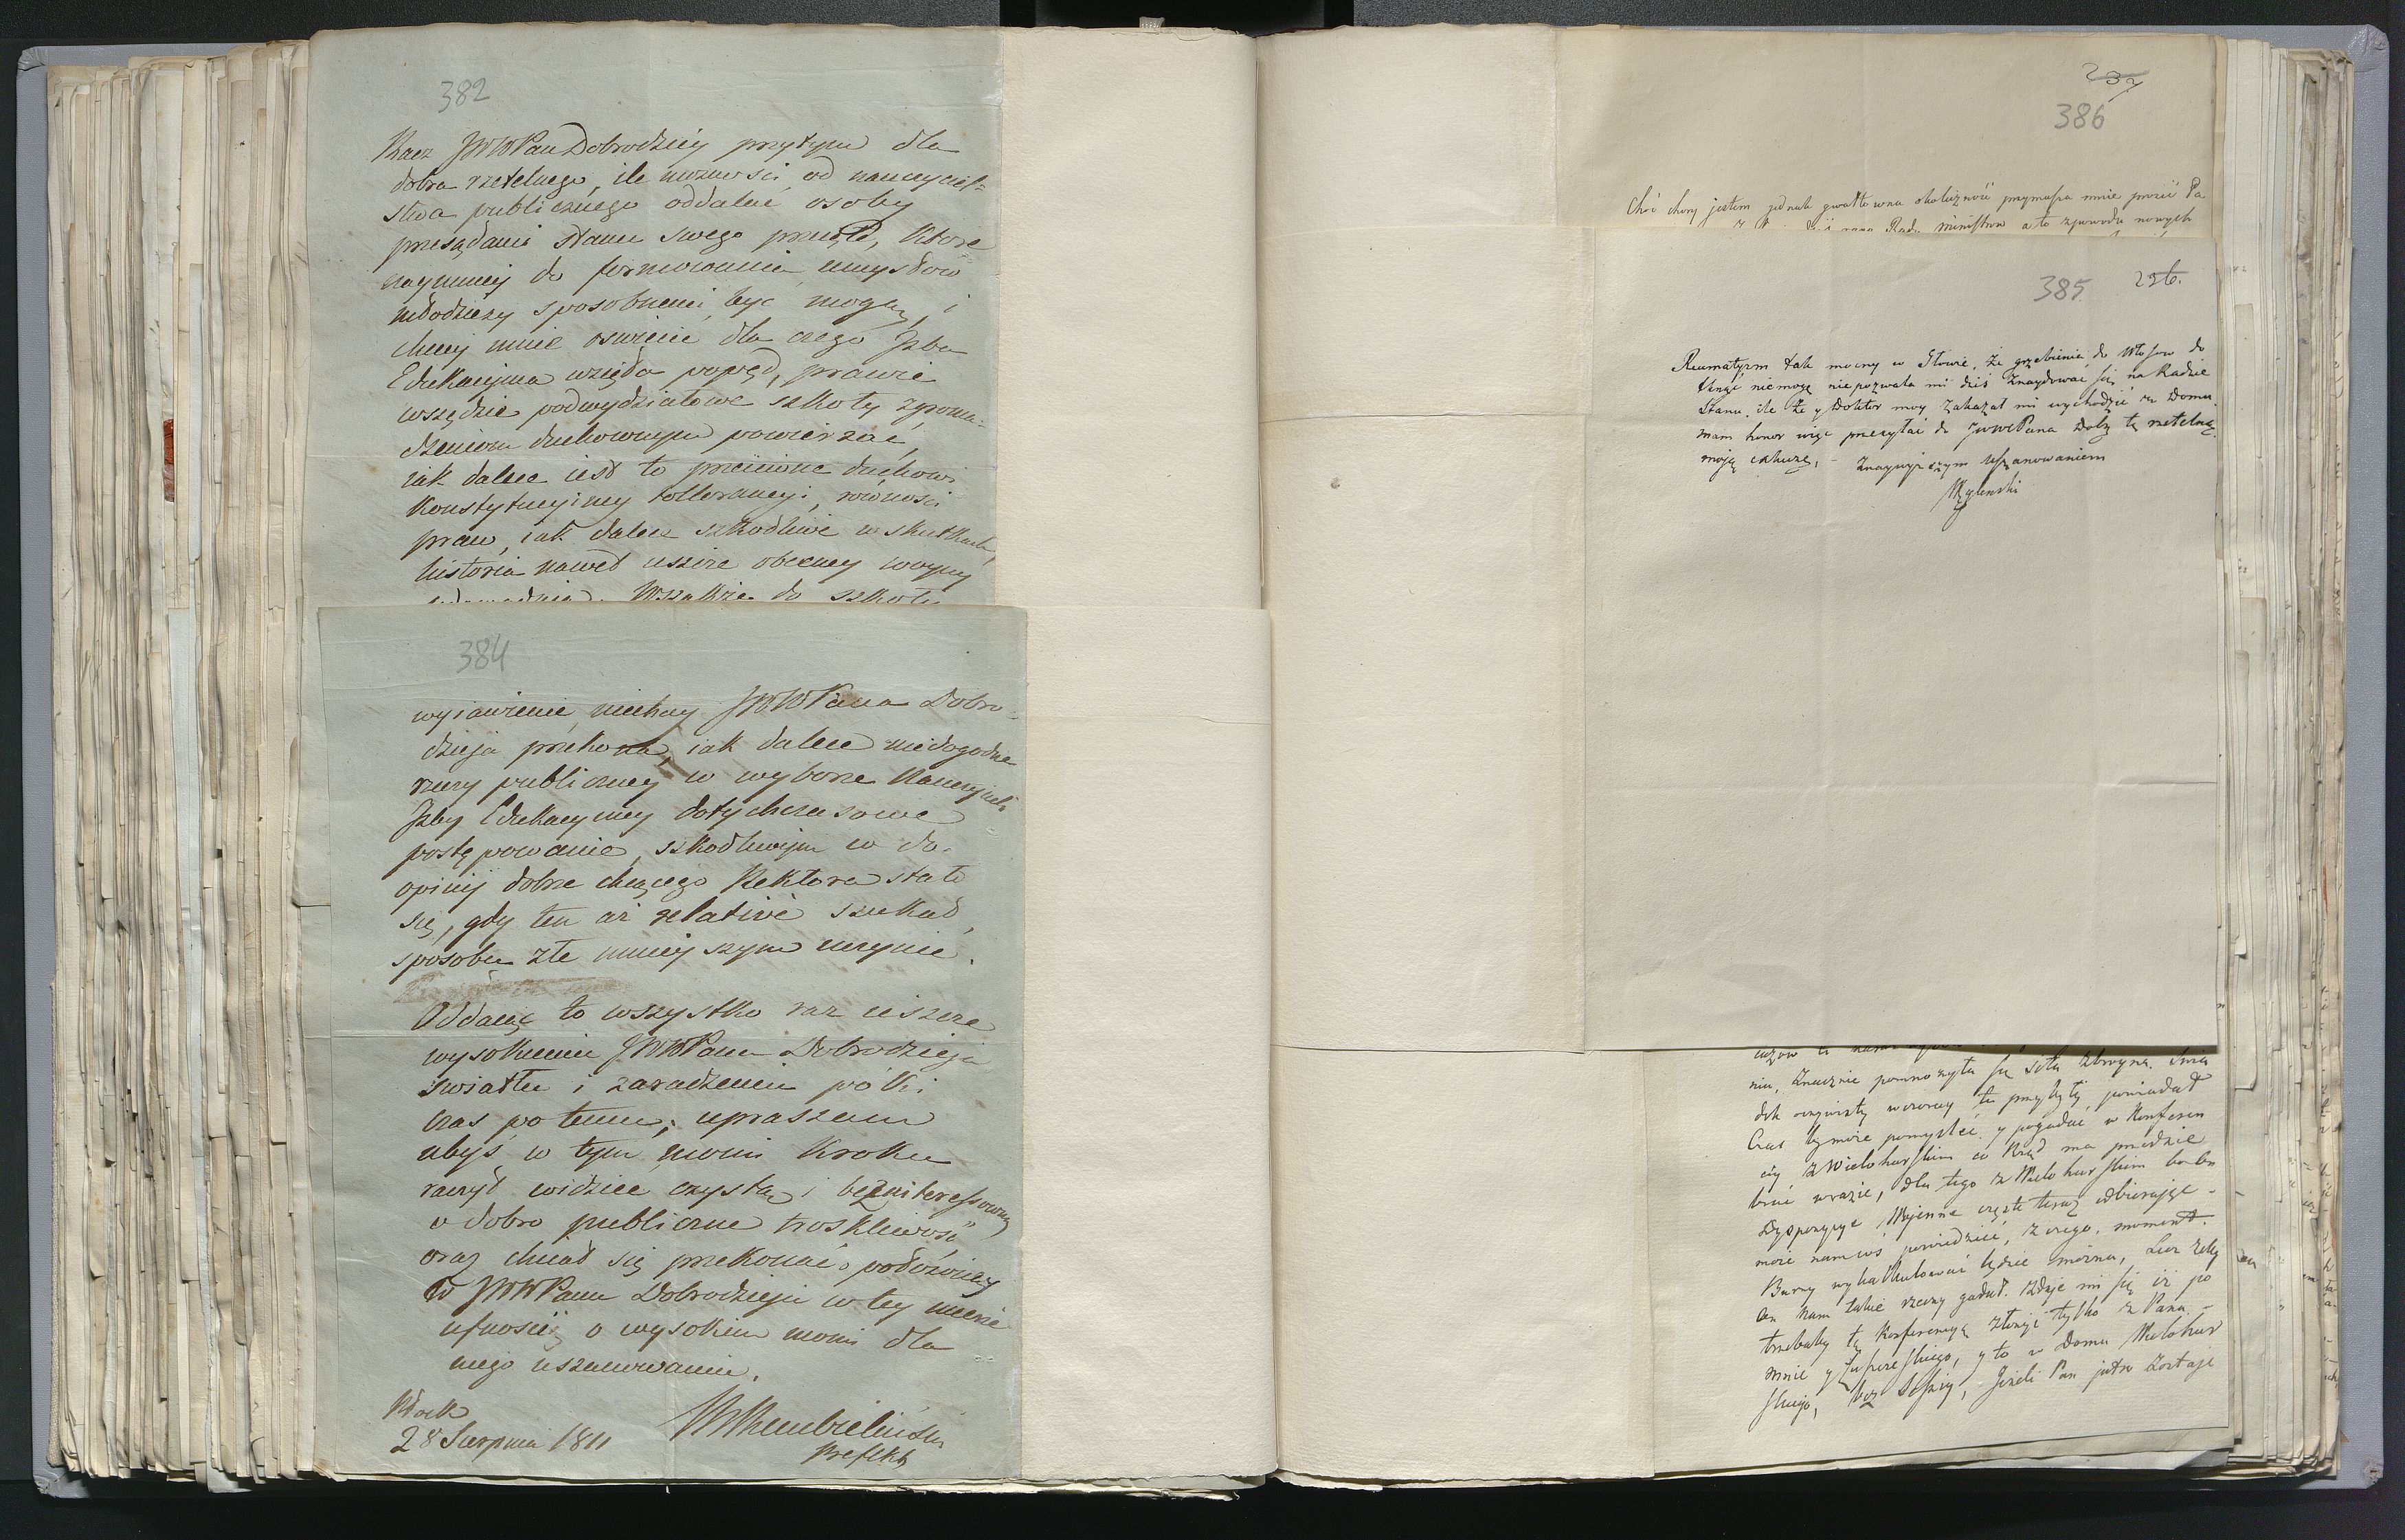 382
Racz JWWPan Dobrodziéy przytym dla
dobra rzetelnego, ile możności od nauczyciel-
stwa publicznego oddalać osoby
przesądami stanu swego przeięte, które
naymniey do formowania umysłów
młodzieży sposobnemi być mogą, i
chciey mnie oświecić dla czego Jzba
Edukacyjna wzięła popęd, prawie
wszędzie podwydziałowe szkoły zgroma-
dzeniom duchownym powierzać,
iak dalece iest to przeciwne duchowi
Konstytucyiney tollerancyi, równości
praw, iak dalece szkodliwe w skutkach,
historia nawet ieszcze obecney woyny
Wszakże do szkoły
384
wyiawienie niechay JWWPana Dobro-
dzieja przekona, iak dalece niedogodne
rzeczy publiczney w wyborze Nauczycieli
Jzby Edukacyiney dotychczasowe
postępowanie, szkodliwym w do-
opinij dobrze chcącego Rektora stało
się, gdy ten aż relative szukał
sposobu złe mnieyszym uczynić.
Oddaiąc to wszystko raz ieszcze
wysokiemu JWWPana Dobrodzieja
światłu i zaradzeniu póki
czas po temu; upraszam
abyś w tym moim kroku
raczył widzieć czystą i bezinteressowną
o dobro publiczne troskliwość
oraz chciał się przekonać o położoney
w JWWPanu Dobrodzieju w tey mierze
ufności o wysokim moim dla
niego uszanowaniu.
Płock
28 Sierpnia 1811
Rembieliński
Prefekt
232
386
Chóć chory jestem jednak gwałtowna okoliczność przymusza mnie prosić Pa
Rada ministrów a to z powodu nowych
385
236.
Reumatyzm tak mocny w Głowie, że grzebienia do Włosow do
tknąć niemogę niepozwala mi dziś znaydować się na Radzie
Stanu, ile że y Doktor moy zakazał mi wychodzić z Domu.
mam honor więc przesyłać do JWWPana Dobr tę rzetelną
moją exkuzę, - Znaywyższym uszanowaniem
Węgleński
niu, znacznie pomnożyła się siła zbroyna. Świa
dek oczywisty wczoray tu przybyły powiadał
Czas by może pomyśleć y pogadać w Konferen
cyi z Wielohurskim co Rząd ma przedsię
brać w razie, dla tego z Wielohurskim bo on
Dyspozycye Wojenne często teraz odbierając -
może nam coś powiedzieć, z czego moment
Burzy wykalkulować będzie można, Lecz żeby
on nam takie rzeczy gadał. zdaje mi się iż po
trzebaby tę Konferencyą złożyć tylko z Pana -
mnie y Łuszczeskiego, y to w Domu Wielohur
skiego, bez Sessyi, Jeżeli Pan jutro zostaje